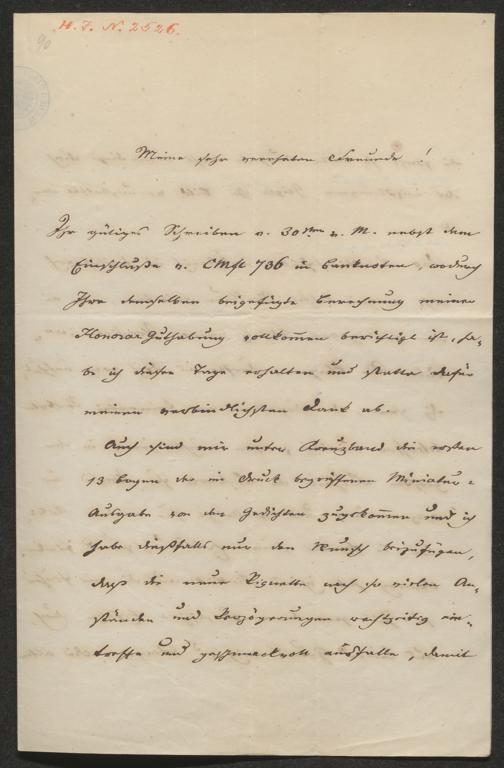 H. I. N. 2526.
90
Meine sehr verehrten Freunde!
Ihr gütiges Schreiben v. 30ten v. M. nebst dem
Einschluße v. CMfl 736 in Banknoten, wodurch
Ihre demselben beigefügte Berechnung meiner
Honorar Guthabung vollkommen berichtigt ist, ha-
be ich dieser Tage erhalten und statte dafür
meinen verbindlichsten Dank ab.
Auch sind mir unter Kreuzband die ersten
13 Bogen der im Druck begriffenen Miniatur-
Ausgabe von den Gedichten zugekommen und ich
habe dießfalls nur den Wunsch beizufügen,
daß die neue Vignette nach so vielen An-
ständen und Verzögerungen rechtzeitig ein-
treffe und geschmackvoll ausfalle, damit